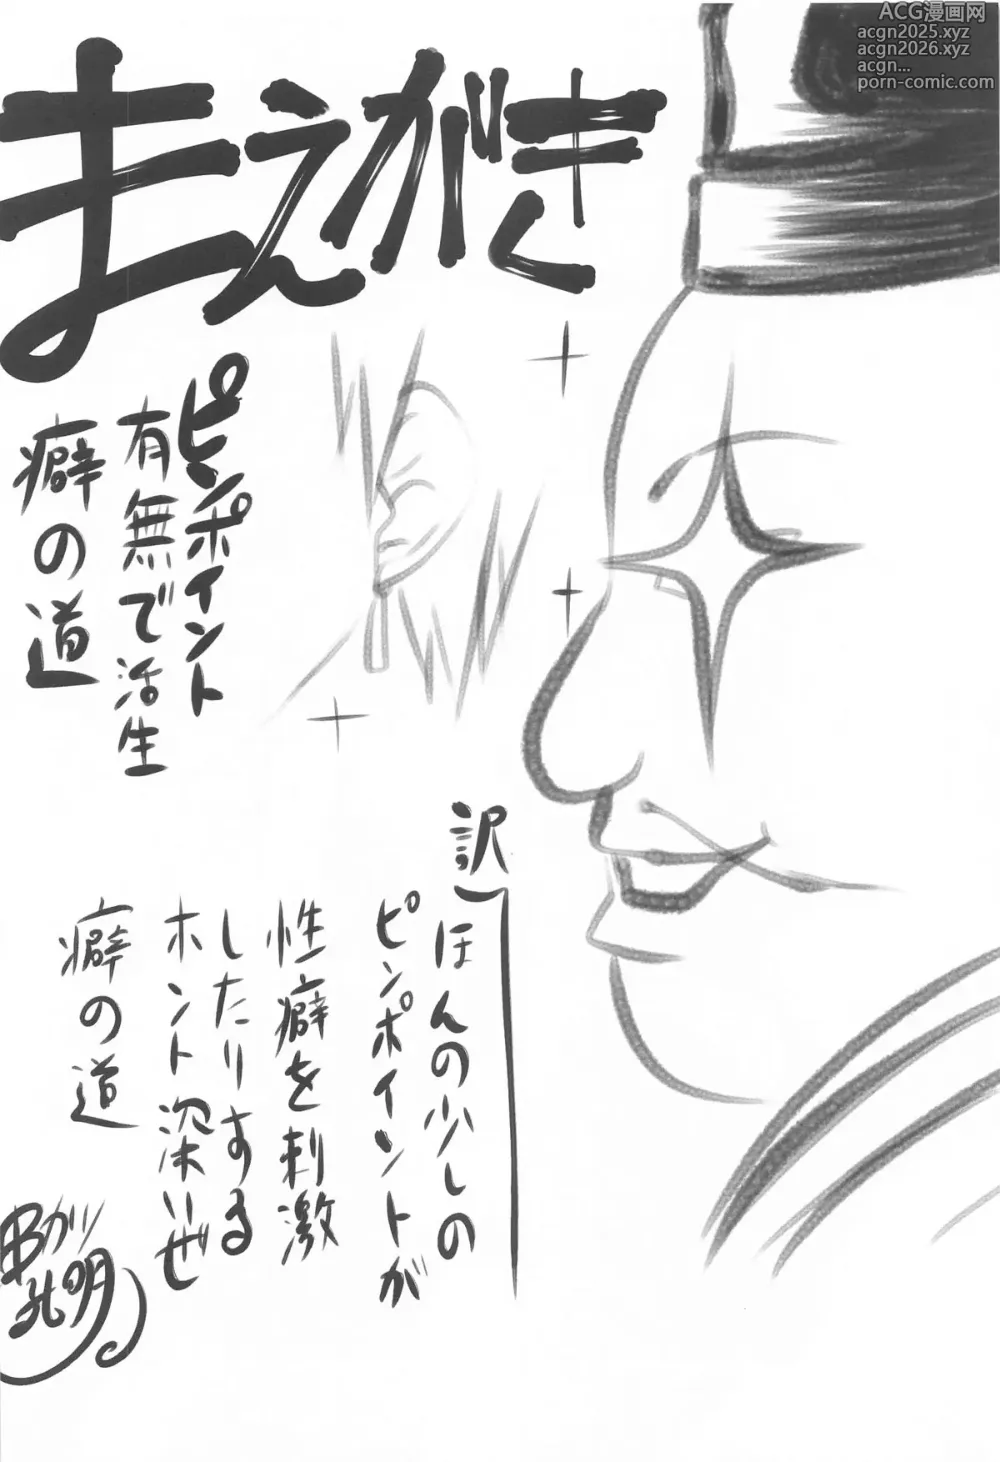 ACG漫画网
acgn2025.xyz
acgn2026.xyz
acgn...
porn-comic.com
まえがき
ピンポイント
有無で活生
癖の道
訳
ほんの少しの
ピンポイントが
性癖を刺激
したりする
ホント深いぜ
癖の道
孔明